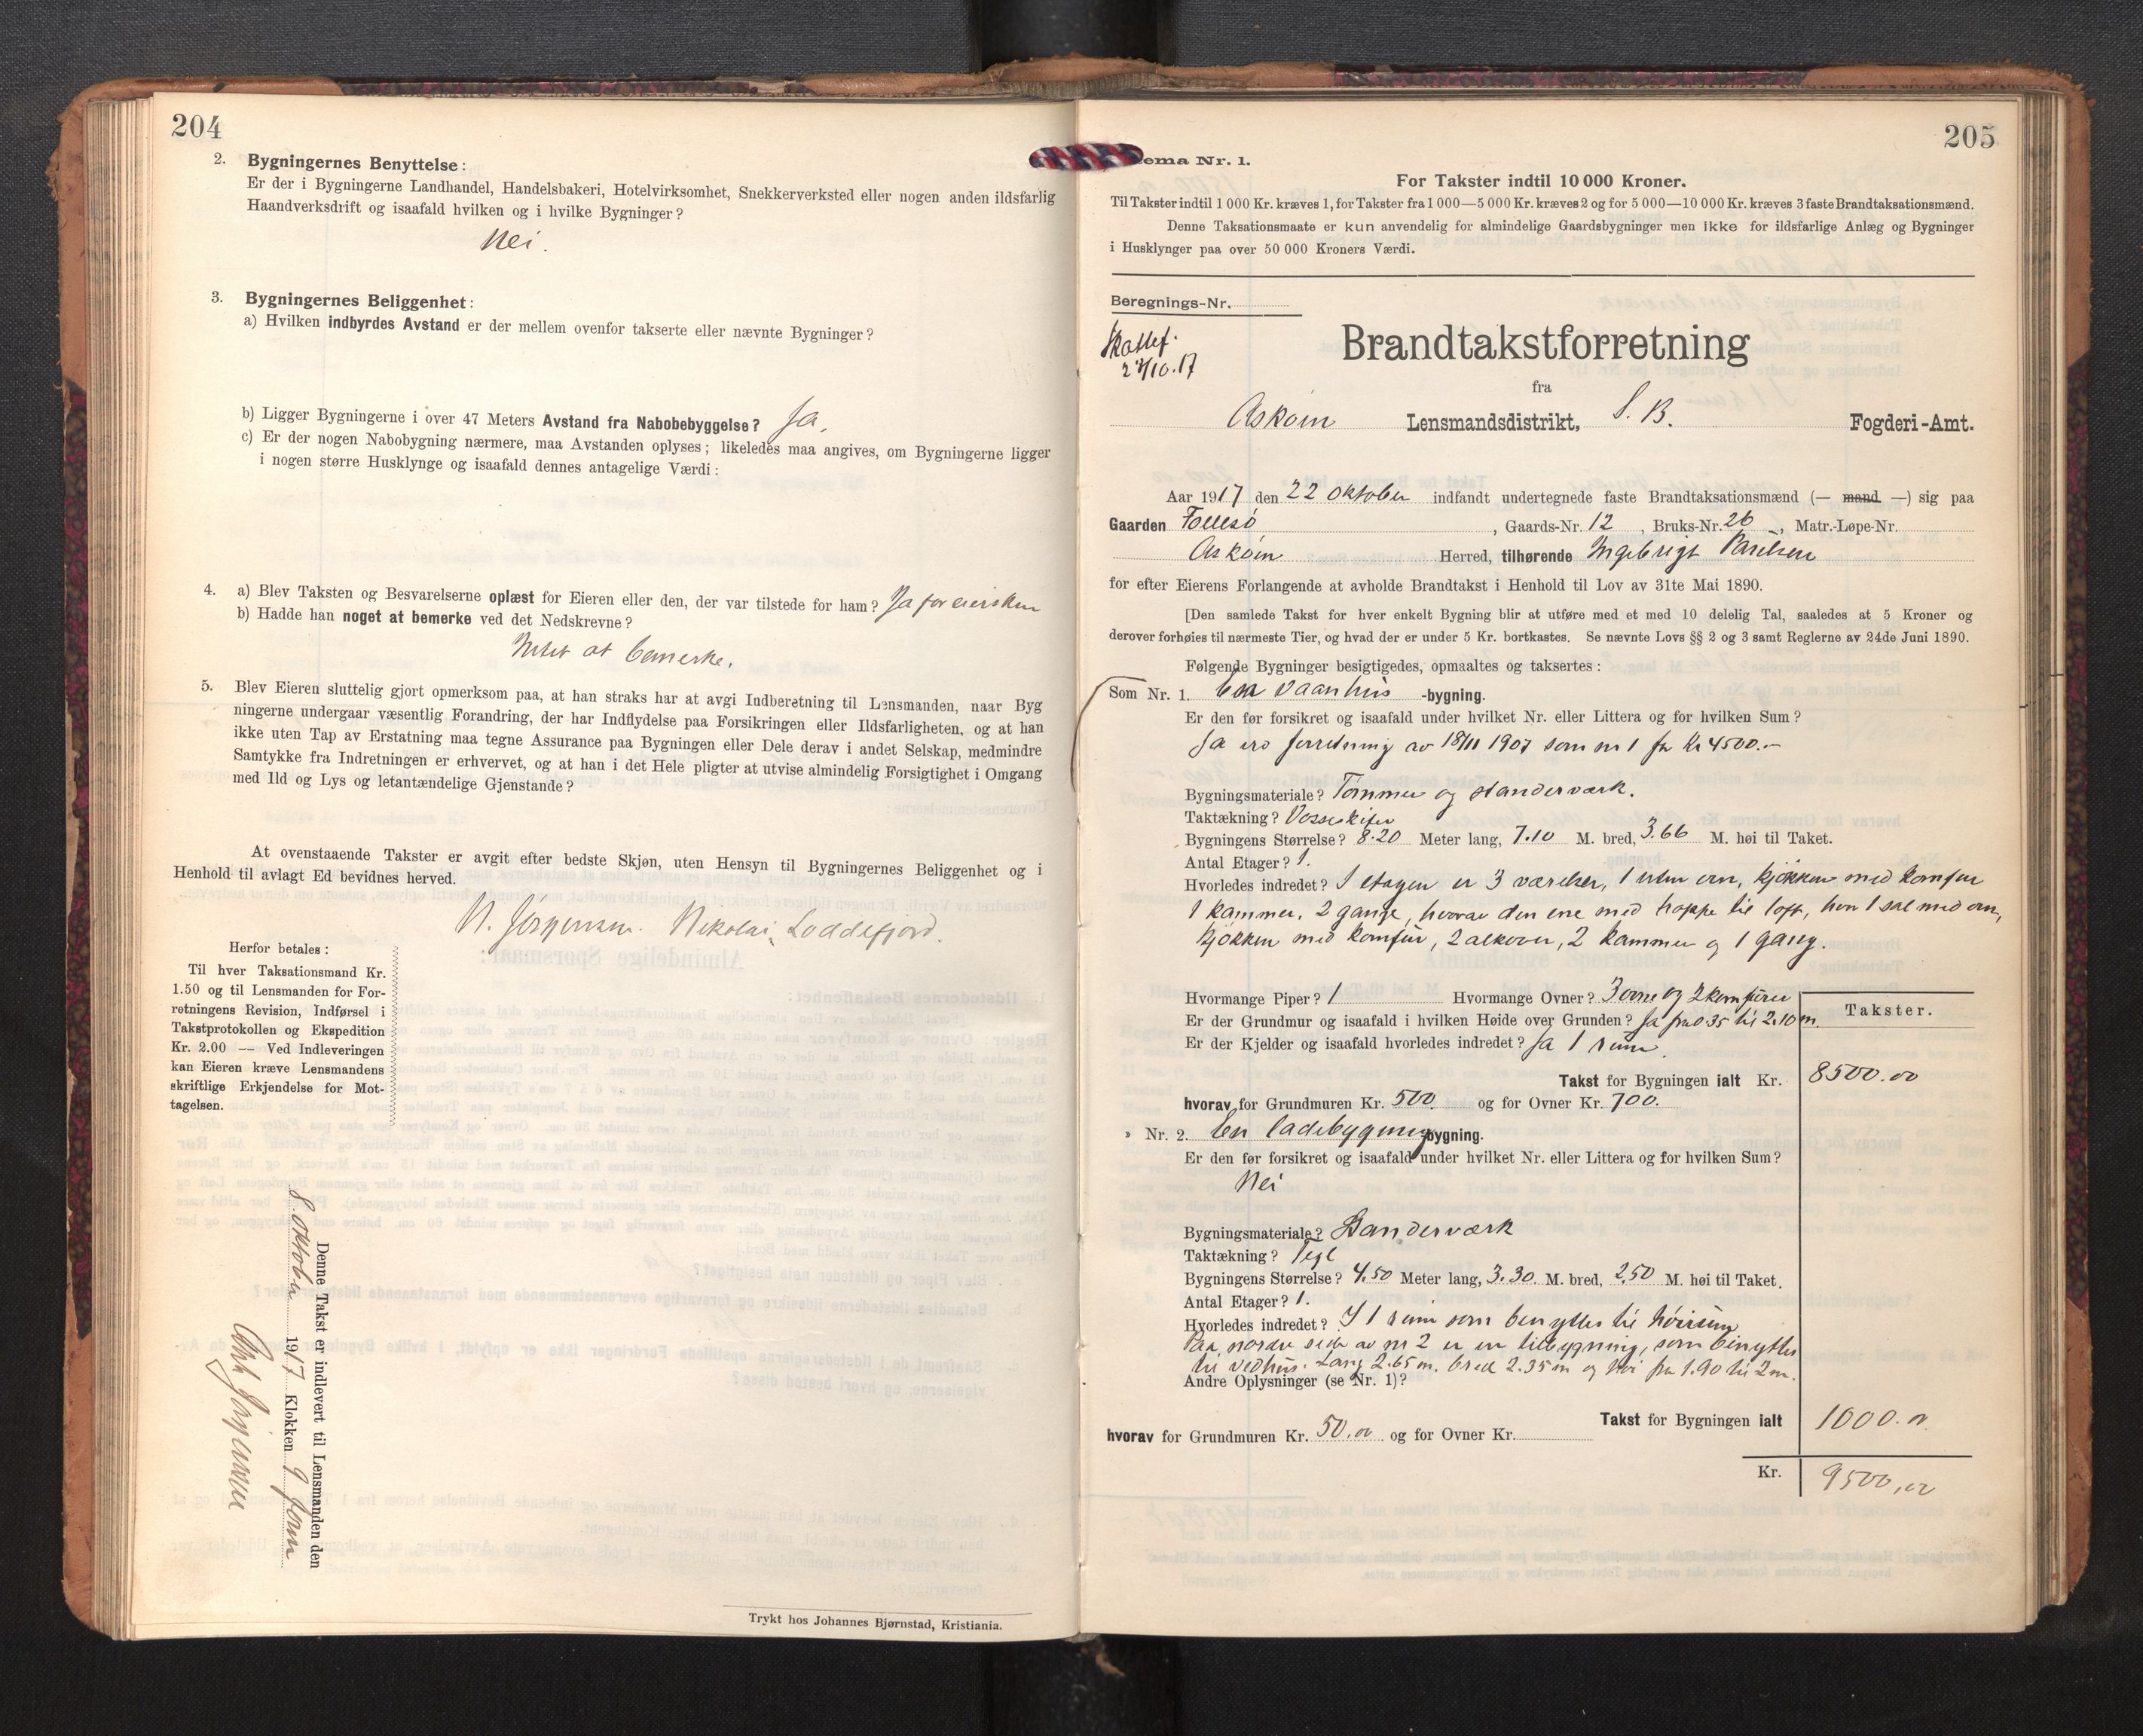 204
2. Bygningernes Benyttelse:
Er der i Bygningerne Landhandel, Handelsbakeri, Hotelvirksomhet, Snekkerverksted eller nogen anden ildsfarlig
Haandverksdrift og isaafald hvilken og i hvilke Bygninger?
Nei.
3. Bygningernes Beliggenhet:
a) Hvilken indbyrdes Avstand er der mellem ovenfor takserte eller nævnte Bygninger?
b) Ligger Bygningerne i over 47 Meters Avstand fra Nabobebyggelse? Ja.
c) Er der nogen Nabobygning nærmere, maa Avstanden oplyses; likeledes maa angives, om Bygningerne ligger
i nogen større Husklynge og isaafald dennes antagelige Værdi:
4. a) Blev Taksten og Besvarelserne oplæst for Eieren eller den, der var tilstede for ham? Ja for eiersken
b) Hadde han noget at bemerke ved det Nedskrevne?
Intet at bemerke.
5. Blev Eieren sluttelig gjort opmerksom paa, at han straks har at avgi Indberetning til Lensmanden, naar Byg
ningerne undergaar væsentlig Forandring, der har Indflydelse paa Forsikringen eller Ildsfarligheten, og at han
ikke uten Tap av Erstatning maa tegne Assurance paa Bygningen eller Dele derav i andet Selskap, medmindre
Samtykke fra Indretningen er erhvervet, og at han i det Hele pligter at utvise almindelig Forsigtighet i Omgang
med Ild og Lys og letantændelige Gjenstande?
At ovenstaaende Takster er avgit efter bedste Skjøn, uten Hensyn til Bygningernes Beliggenhet og i
Henhold til avlagt Ed bevidnes herved.
N. Jørgensen. Nikolai Loddefjord.
Herfor betales:
Til hver Taksationsmand Kr.
1.50 og til Lensmanden for For-
retningens Revision, Indførsel i
Takstprotokollen og Ekspedition
Kr. 2.00 — Ved Indleveringen
kan Eieren kræve Lensmandens
skriftlige Erkjendelse for Mot-
tagelsen.
Denne Takst er indlevert til Lensmanden den
8 oktober 1917 Klokken 9 form
Jørgensen
Trykt hos Johannes Bjørnstad, Kristiania.
205
ema Nr. 1.
For Takster indtil 10 000 Kroner.
Til Takster indtil 1 000 Kr. kræves 1, for Takster fra 1 000—5 000 Kr. kræves 2 og for 5 000—10 000 Kr. kræves 3 faste Brandtaksationsmænd.
Denne Taksationsmaate er kun anvendelig for almindelige Gaardsbygninger men ikke for ildsfarlige Anlæg og Bygninger
i Husklynger paa over 50 000 Kroners Værdi.
Beregnings-Nr.
27/10.17
Brandtakstforretning
fra
Askøin Lensmandsdistrikt, S. B. Fogderi-Amt.
Aar 1917 den 22 oktober indfandt undertegnede faste Brandtaksationsmænd (— mand —) sig paa
Gaarden Follesø, Gaards-Nr. 12, Bruks-Nr. 26, Matr.-Løpe-Nr.
Askøin Herred, tilhørende Ingebrigt Paulsen
for efter Eierens Forlangende at avholde Brandtakst i Henhold til Lov av 31te Mai 1890.
[Den samlede Takst for hver enkelt Bygning blir at utføre med et med 10 delelig Tal, saaledes at 5 Kroner og
derover forhøies til nærmeste Tier, og hvad der er under 5 Kr. bortkastes. Se nævnte Lovs §§ 2 og 3 samt Reglerne av 24de Juni 1890.
Følgende Bygninger besigtigedes, opmaaltes og taksertes:
Som Nr. 1. En vaanhus -bygning.
Er den før forsikret og isaafald under hvilket Nr. eller Littera og for hvilken Sum?
Ja ved forretning av 18/11 1907 som nr 1 for Kr 4500.–
Bygningsmateriale? Tømmer og standerværk.
Taktækning? Vosseskifer
Bygningens Størrelse? 8.20 Meter lang, 7.10 M. bred, 3.66 M. høi til Taket.
Antal Etager? 1.
Hvorledes indredet? I etagen er 3 værelser, 1 uten ovn, kjøkken med komfur
1 kammer, 2 gange, hvorav den ene med trappe til loft, hvor 1 sal med ovn,
kjøkken med komfur, 2 alkover, 2 kammer og 1 gang.
Hvormange Piper? 1 Hvormange Ovner? 3 ovne og 2 komfurer
Er der Grundmur og isaafald i hvilken Høide over Grunden? Ja fra 0.35 til 2.10 m.
Er der Kjelder og isaafald hvorledes indredet? Ja 1 rum.
Takster.
Takst for Bygningen ialt Kr. 8500.00
hvorav for Grundmuren Kr. 500 og for Ovner Kr. 700.
» Nr. 2. En ladebygning bygning.
Er den før forsikret og isaafald under hvilket Nr. eller Littera og for hvilken Sum?
Nei
Bygningsmateriale? Standerværk
Taktækning? Tegl
Bygningens Størrelse? 4.50 Meter lang, 3.30. M. bred, 2.50 M. høi til Taket.
Antal Etager? 1.
Hvorledes indredet? I 1 rum som benyttes til høirum
Paa nordre side av nr 2 er en tilbygning, som benyttes
til vedhus. Lang 2.65 m. bred 2.35 m og høi fra 1.90 til 2 m.
Andre Oplysninger (se Nr. 1)?
Takst for Bygningen ialt 1000.00
hvorav for Grundmuren Kr. 50.00 og for Ovner Kr.
Kr. 9500,00